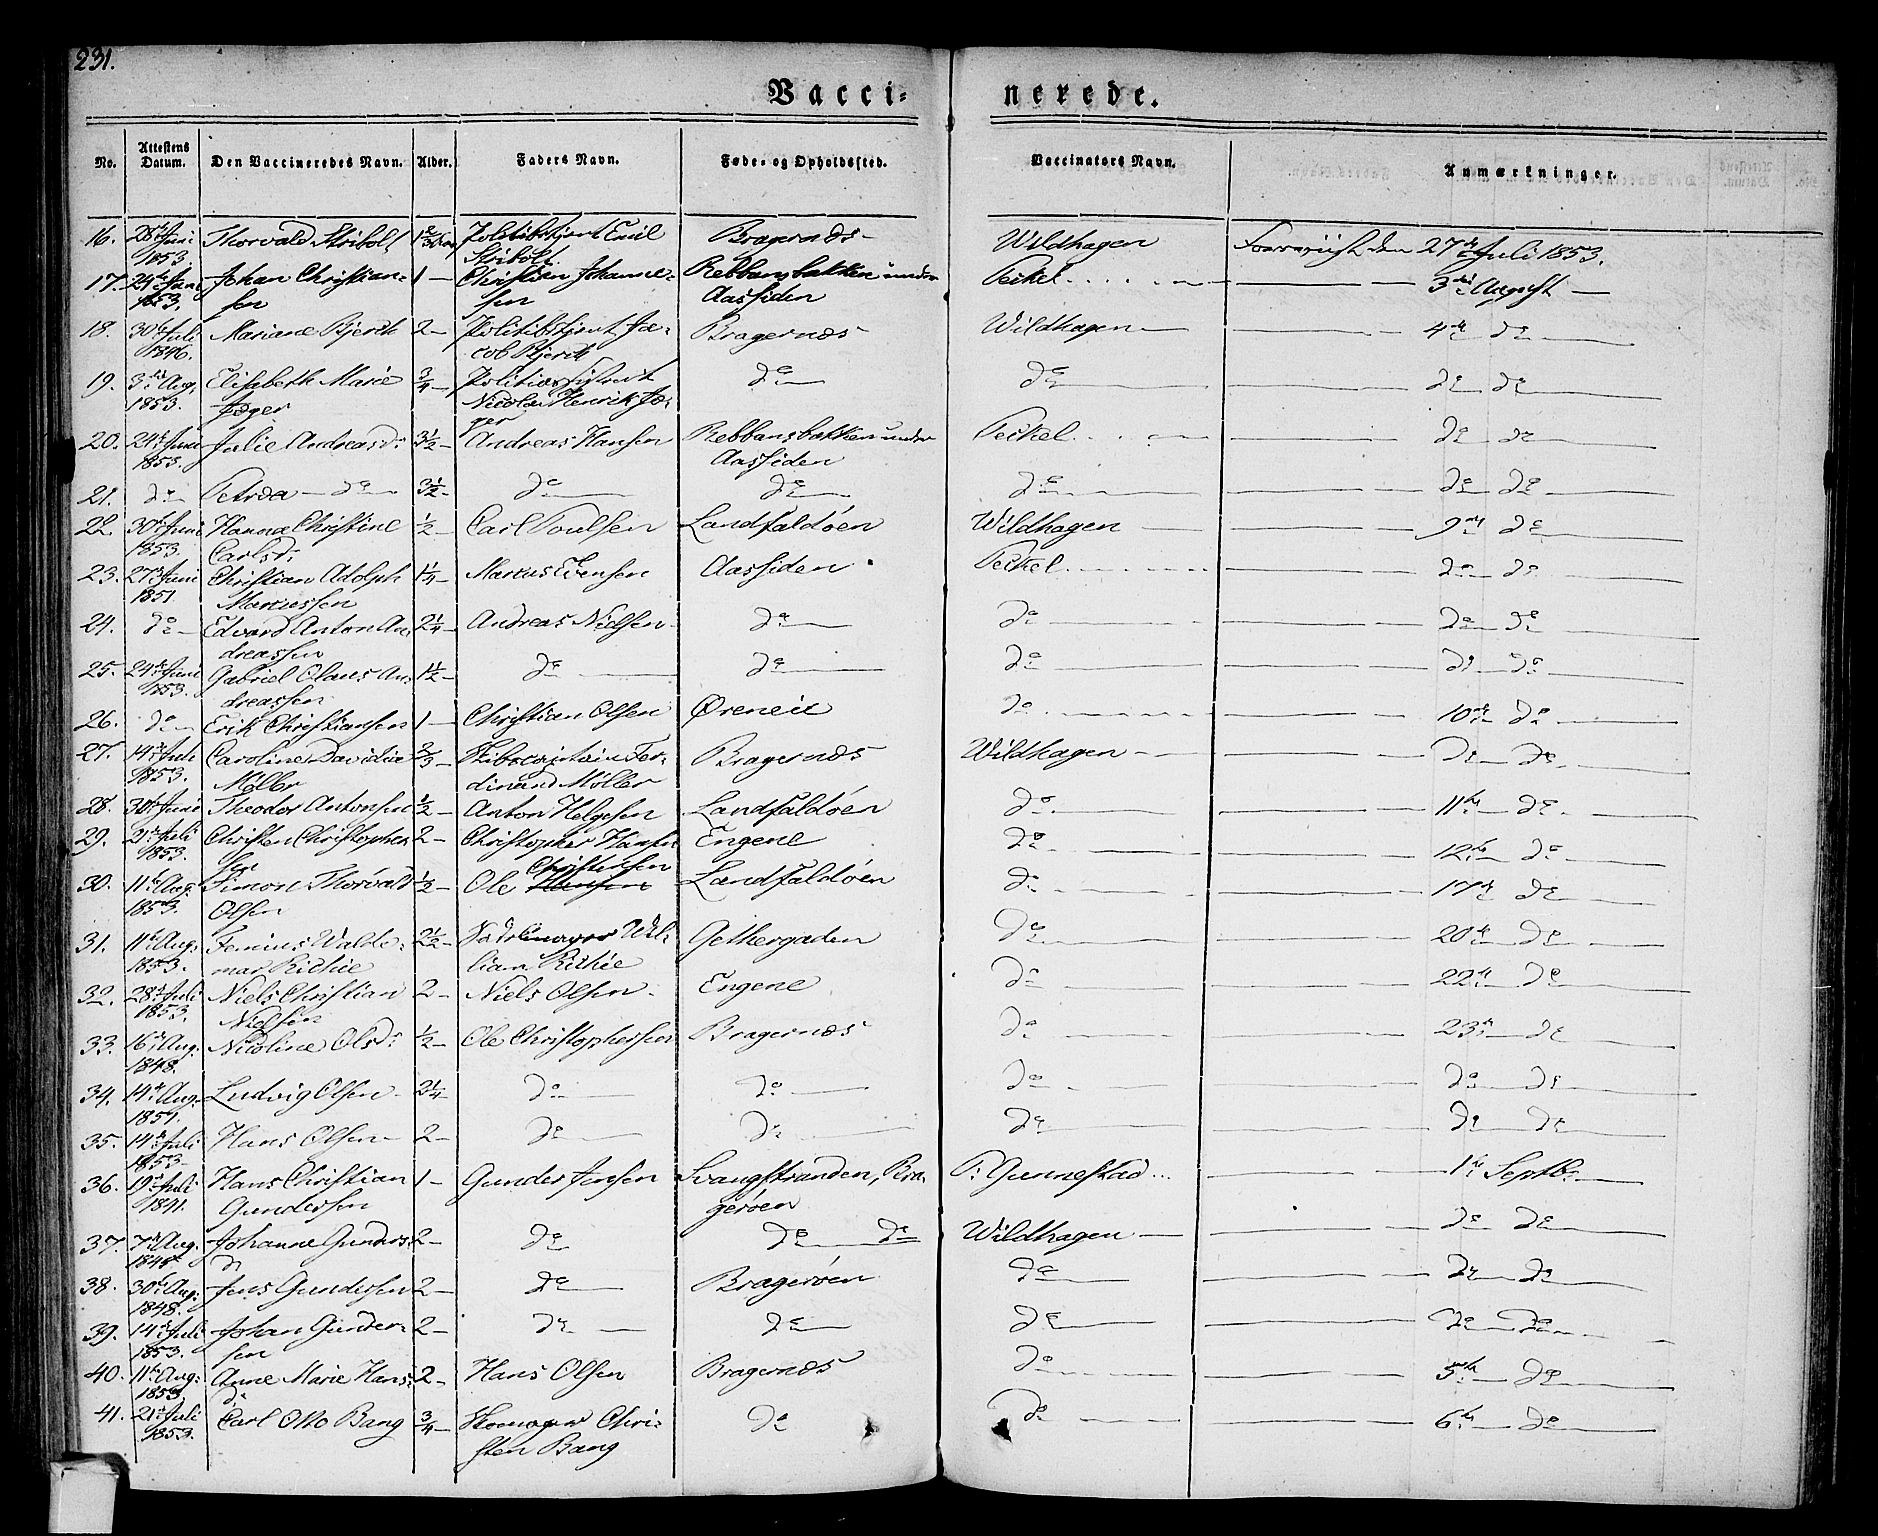 231.
Vacci-
nerede.
No.
Attestens Datum.
Den Vaccineredes Navn.
Alder.
Faders Navn.
Føde- og Opholdssted.
Vaccinators Navn.
Anmærkninger.
16. 28de Juni Thorvald Stribolt Politibetjent Emil Bragernæs Wildhagen 27de Juli 1853.
1853. Stribolt
17. 24de Juni Johan Christian- 1 — Christian Johanne- Rebbansbakken under Peckel 3die August —
1853. sen sen Aassiden
18. 30te Juli Mariane Bjerck 2 — Politibetjent Ja- Bragernæs Wildhagen — 4de do
1846. cob Bjerck
19. 3die Aug. Elisabeth Marie 3/4 — do do do do
1853. Jæger Nicolai Henrik Jæ-
ger
20. 24de Juni Julie Andreasd: 3 1/2 — Andreas Hansen Rebbansbakken under Peckel do do
1853. Aassiden
21. do Petrea — do 3 1/2 — do do do do do
22. 30te Juni Hanna Christine 1/2 — Carl Poulsen Landfaldøen Wildhagen 9de do
1853. Carlsd:
23. 27de Juni Christian Adolph 1 1/4 — Marcus Evensen Aassiden Peckel do do
1851. Marcussen
24. do Edvard Anton An- 2 1/4 — Andreas Nielsen do do do do
dreassen
25. 24de Juni Gabriel Olaus An- 1 1/2 — do do do do do
1853. dreassen
26. do Erik Christiansen 1 — Christian Olsen Øreneie do 10de do
27. 14de Juli Caroline Davidia 2/3 — Skibscaptain Fer- Bragernæs Wildhagen — do do
1853. Møller dinand Møller
28. 30te Juni Theodor Antonsen 1/2 — Anton Helgesen Landfaldøen do 11te do
29. 21de Juli Christen Christopher- 2 — Christopher Hansen Engene do 12te do
1853. sen Christensen
30. 11te Aug. Simon Thorvald 1/2 — Ole Hansen Landfaldøen do 17de do
1853. Olsen
31. 11te Aug: Waldе- 2 1/2 — Sadelmager Wil- Gethergaden do 20de do
1853. mar Richie liam Richie
32. 28de Juli Niels Christian 2 — Niels Olsen Engene do 22de do
1853. Nielsen
33. 16de Aug: Nicoline Olsd: 1/2 — Ole Christophersen Bragernæs do 23de do
1848.
34. 14de Aug: Ludvig Olsen 2 1/4 do do do do do
1851.
35. 14de Juli Hans Olsen — 2 — do do do do do
1853.
36. 19de Juli Hans Christian 1 — Gunder Jensen Svangstranden, Bra- P: Gunnestad 1ste Septb:
1841. Gundersen gerøen
37. 7de Aug. Johanne Gunders 2 — do do do Wildhagen — do do
d
38. 30te Aug: Jens Gundersen 2 — do Bragerøen do do do
1848.
39. 14de Juli Johan Gunder- 2 — do do do do do
1853. sen
40. 11te Aug: Anne Marie Hans 2 — Hans Olsen Bragernæs do 5te do
1853. d:
41. 21de Juli Carl Otto Bang 3/4 — Chri- do do 6te do
1853. sten Bang